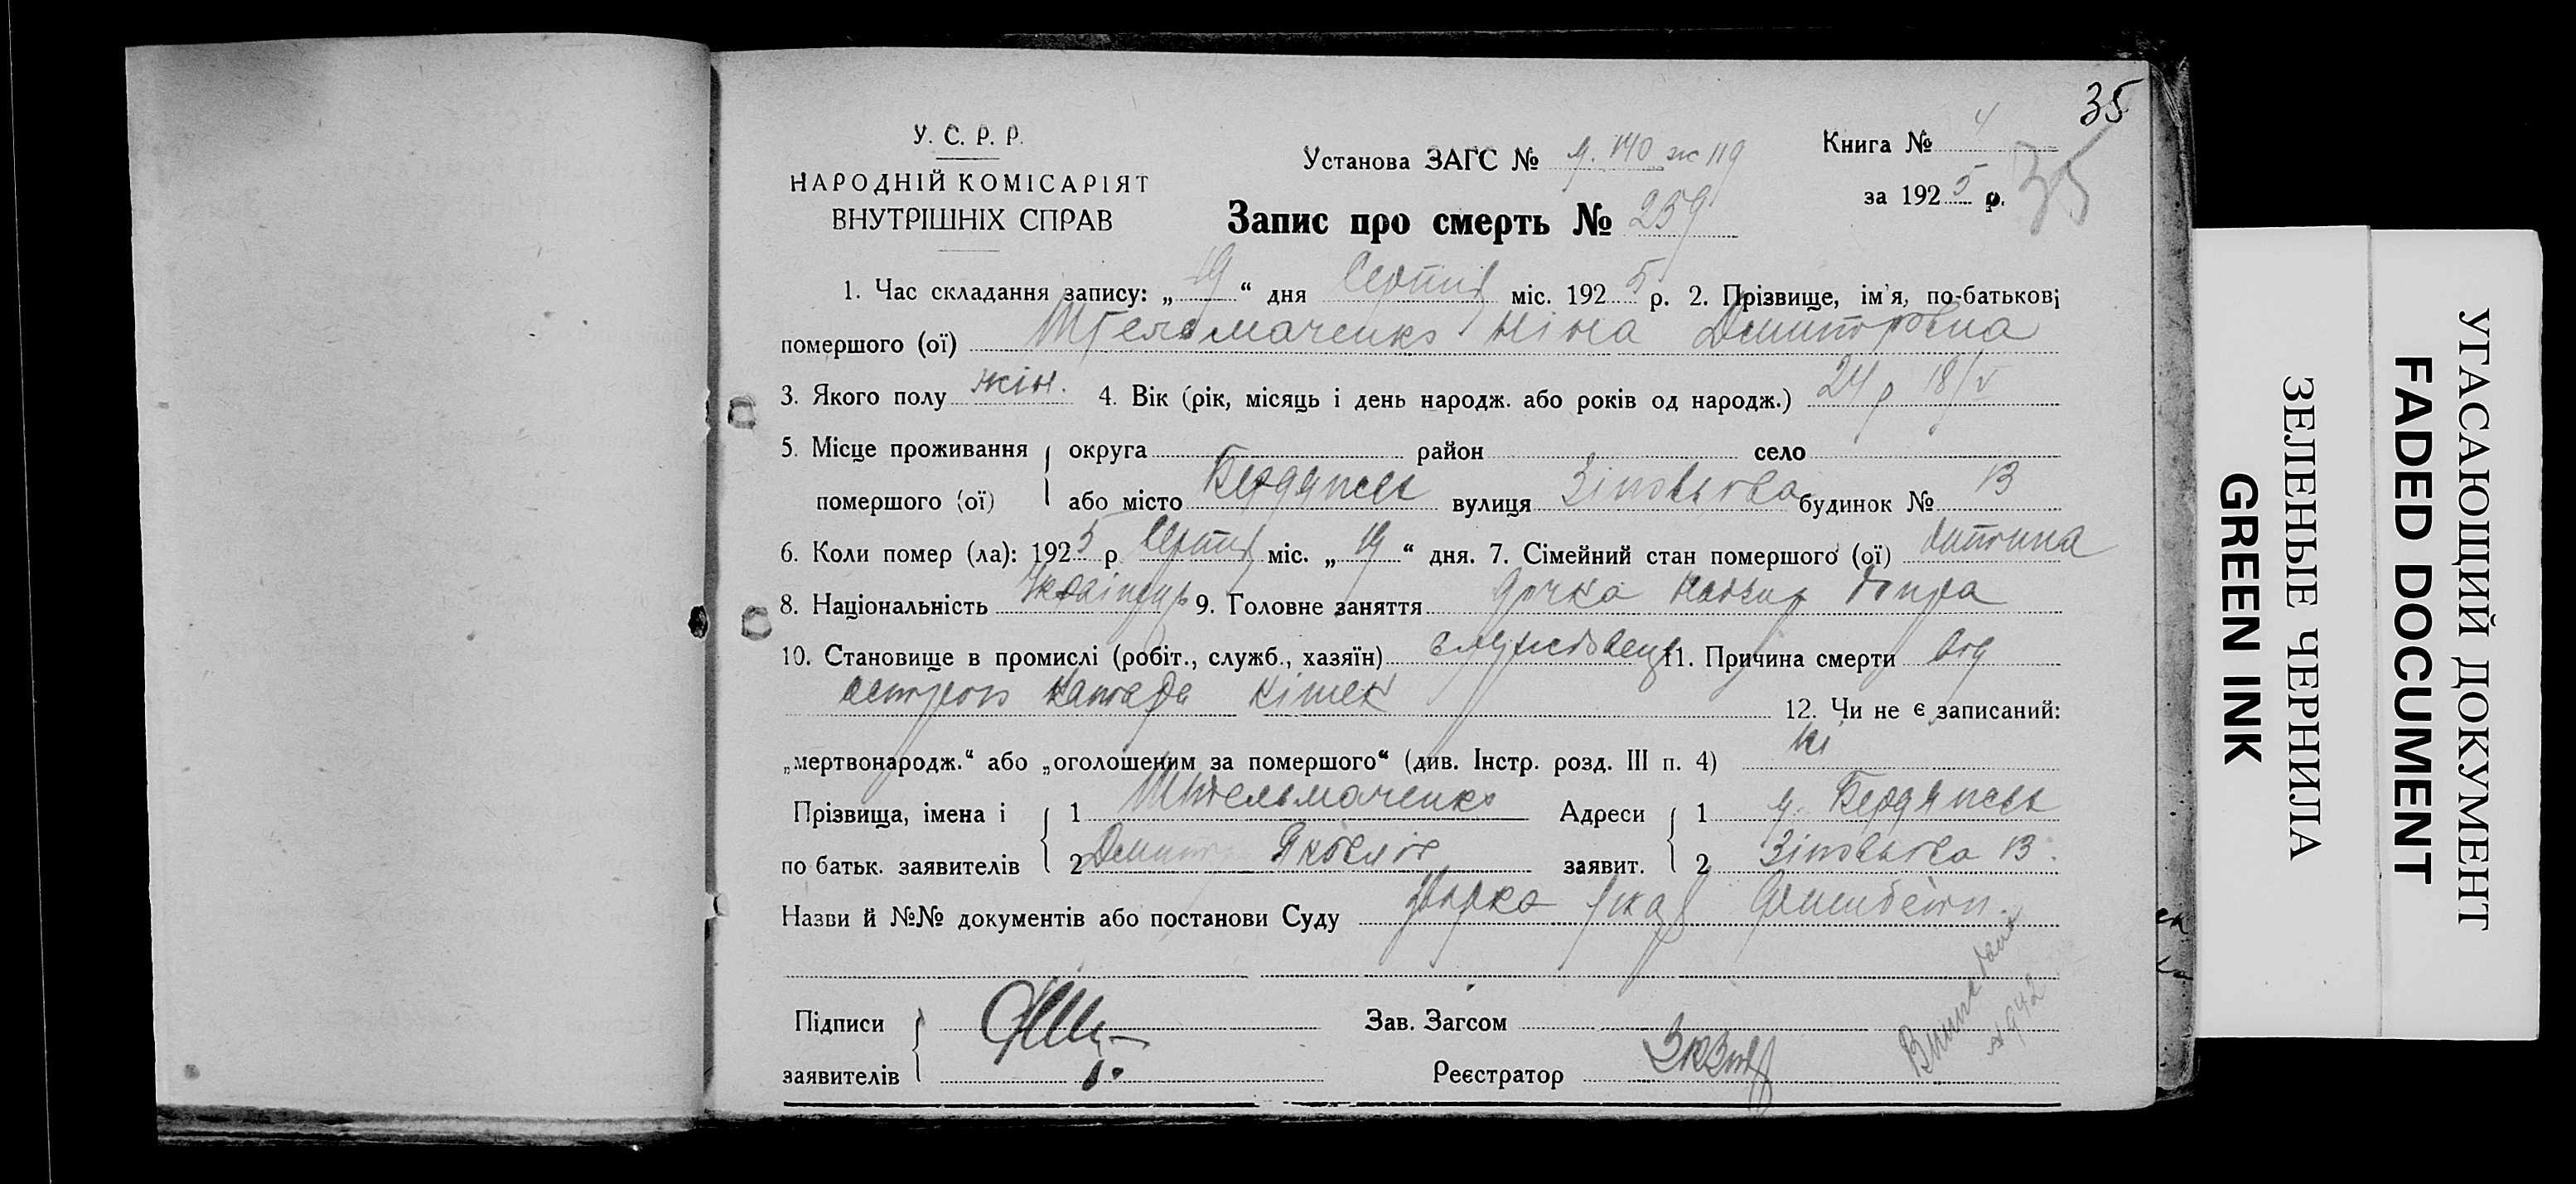 35
У. С. Р. Р.
НАРОДНІЙ КОМІСАРІЯТ
ВНУТРІШНІХ СПРАВ
Установа ЗАГС №
Книга № 4
за 1925 р.
35
Запис про смерть № 259
1. Час складання запису: „19“ дня Серпня міс. 1925 р. 2. Прізвище, ім'я, по-батькові
помершого (ої) Штельмаченко Ніна Дмитровна
3. Якого полу жін. 4. Вік (рік, місяць і день народж. або років од народж.) 24 р 18/V
5. Місце проживання округа район село
помершого (ої) або місто Бердянськ вулиця Зіновьєва будинок № 13
6. Коли помер (ла): 1925 р Серпня міс. „19“ дня. 7. Сімейний стан помершого (ої) дитина
8. Національність Українець 9. Головне заняття дочка
10. Становище в промислі (робіт., служб., хазяїн) службовець 11. Причина смерти від
катара кішек
12. Чи не є записаний:
„мертвонародж.“ або „оголошеним за помершого“ (див. Інстр. розд. III п. 4) ні
Прізвища, імена і 1 Штельмаченко Адреси 1 м. Бердянськ
по батьк. заявителів 2 Дмитро Яковлев заявит. 2 Зіновьєва 13.
Назви й №№ документів або постанови Суду
Підписи
заявителів
Зав. Загсом
Реєстратор
УГАСАЮЩИЙ ДОКУМЕНТ
FADED DOCUMENT
ЗЕЛЕНЫЕ ЧЕРНИЛА
GREEN INK